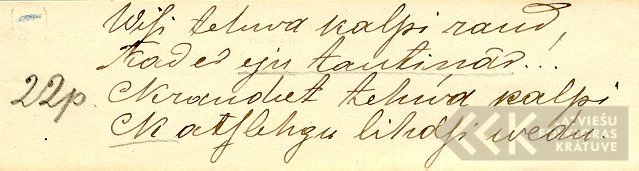 Wisi tehwa kalpi raud,
Kad es eju tautinâs!..
22p. Neraudiet tehwa kalpi
Ne atslehgu lihdsi wedu.
LATVIEŠU
KRATUVE